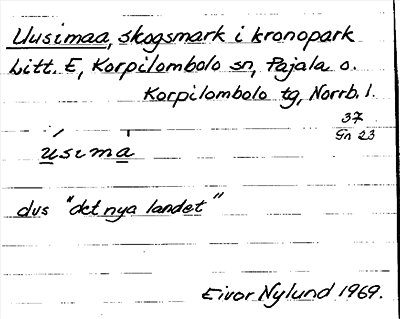 Uusimaa, skogsmark i kronopark
Litt. E, Korpilombolo sn, Pajala o.
Korpilombolo tg, Norrb. l.
37
Gn 23
úsima̍
dvs "det nya landet"
Eivor Nylund 1969.